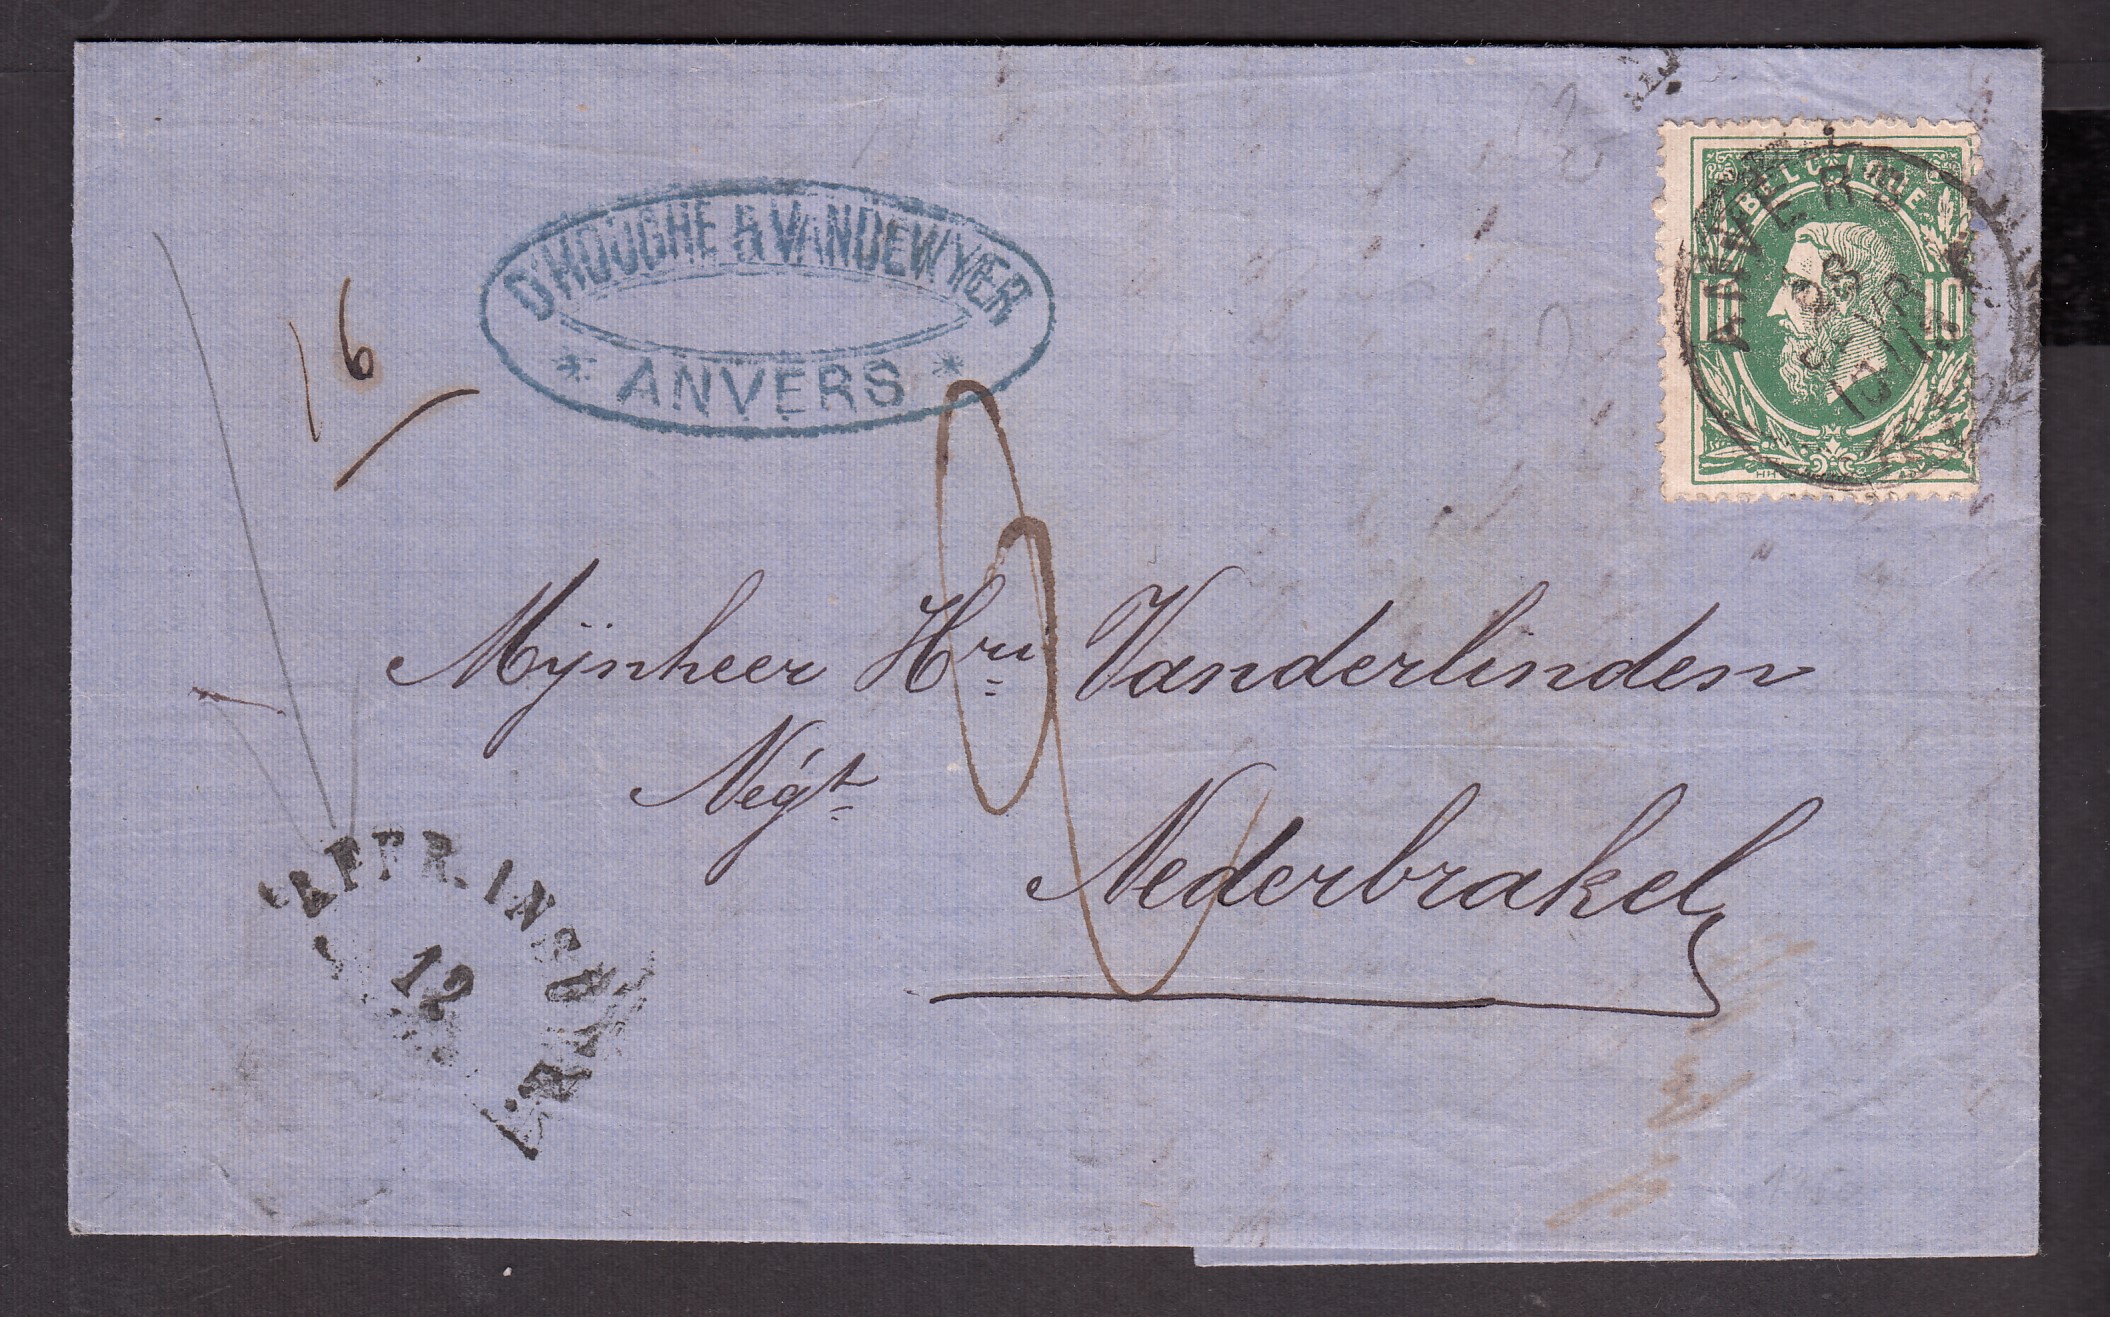 D'HOUGHE & VANDEWYER
* ANVERS *
BELGIQUE
10 10
ANVERS
16
Mijnheer Hri Vanderlinden
Négt
Nederbrakel
AFFR. INSUFF
12